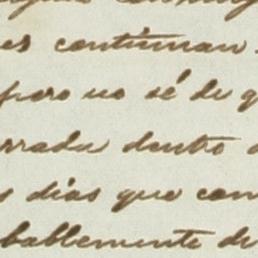 es continuan
pero no sé de q
rrada dentro d
s dias que con
bablemente de